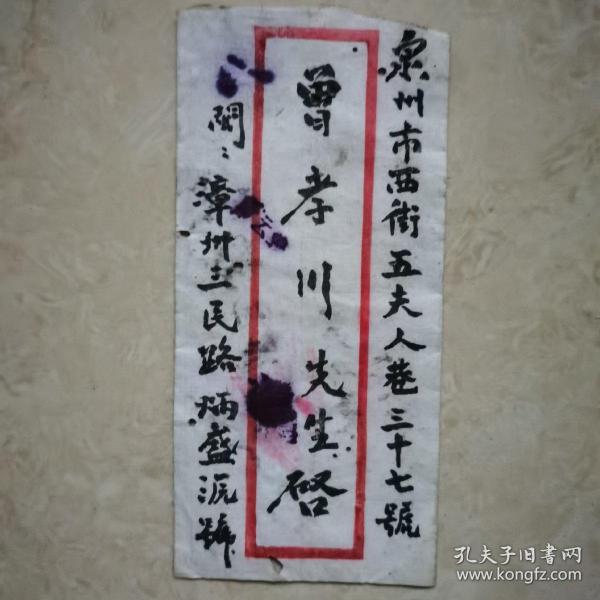 泉州市西街五夫人巷三十七號
曾孝川先生啓
閩：漳州三民路炳盛派號
孔夫子旧書网
www.kongfz.com